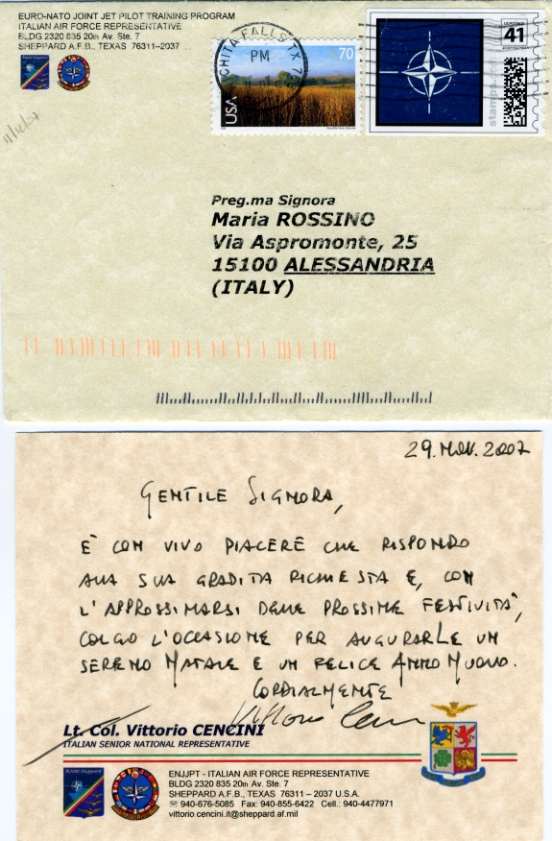 EURO-NATO JOINT JET PILOT TRAINING PROGRAM
ITALIAN AIR FORCE REPRESENTATIVE
BLDG 2320 835 20th Av. Ste. 7
SHEPPARD A.F.B., TEXAS 76311–2037
CHITA FALLS TX 7
PM
70
USA
41
stamps
Preg.ma Signora
Maria ROSSINO
Via Aspromonte, 25
15100 ALESSANDRIA
(ITALY)
29. NOV. 2007
GENTILE SIGNORA,
È CON VIVO PIACERE CHE RISPONDO
ALLA SUA GRADITA RICHIESTA E, CON
L'APPROSSIMARSI DELLE PROSSIME FESTIVITÀ,
COLGO L'OCCASIONE PER AUGURARLE UN
SERENO NATALE E UN FELICE ANNO NUOVO.
CORDIALMENTE
Lt. Col. Vittorio CENCINI
ITALIAN SENIOR NATIONAL REPRESENTATIVE
ENJJPT - ITALIAN AIR FORCE REPRESENTATIVE
BLDG 2320 835 20th Av. Ste. 7
SHEPPARD A.F.B., TEXAS 76311 – 2037 U.S.A.
☎ 940-676-5085 Fax: 940-855-6422 Cell.: 940-4477971
vittorio.cencini.it@sheppard.af.mil